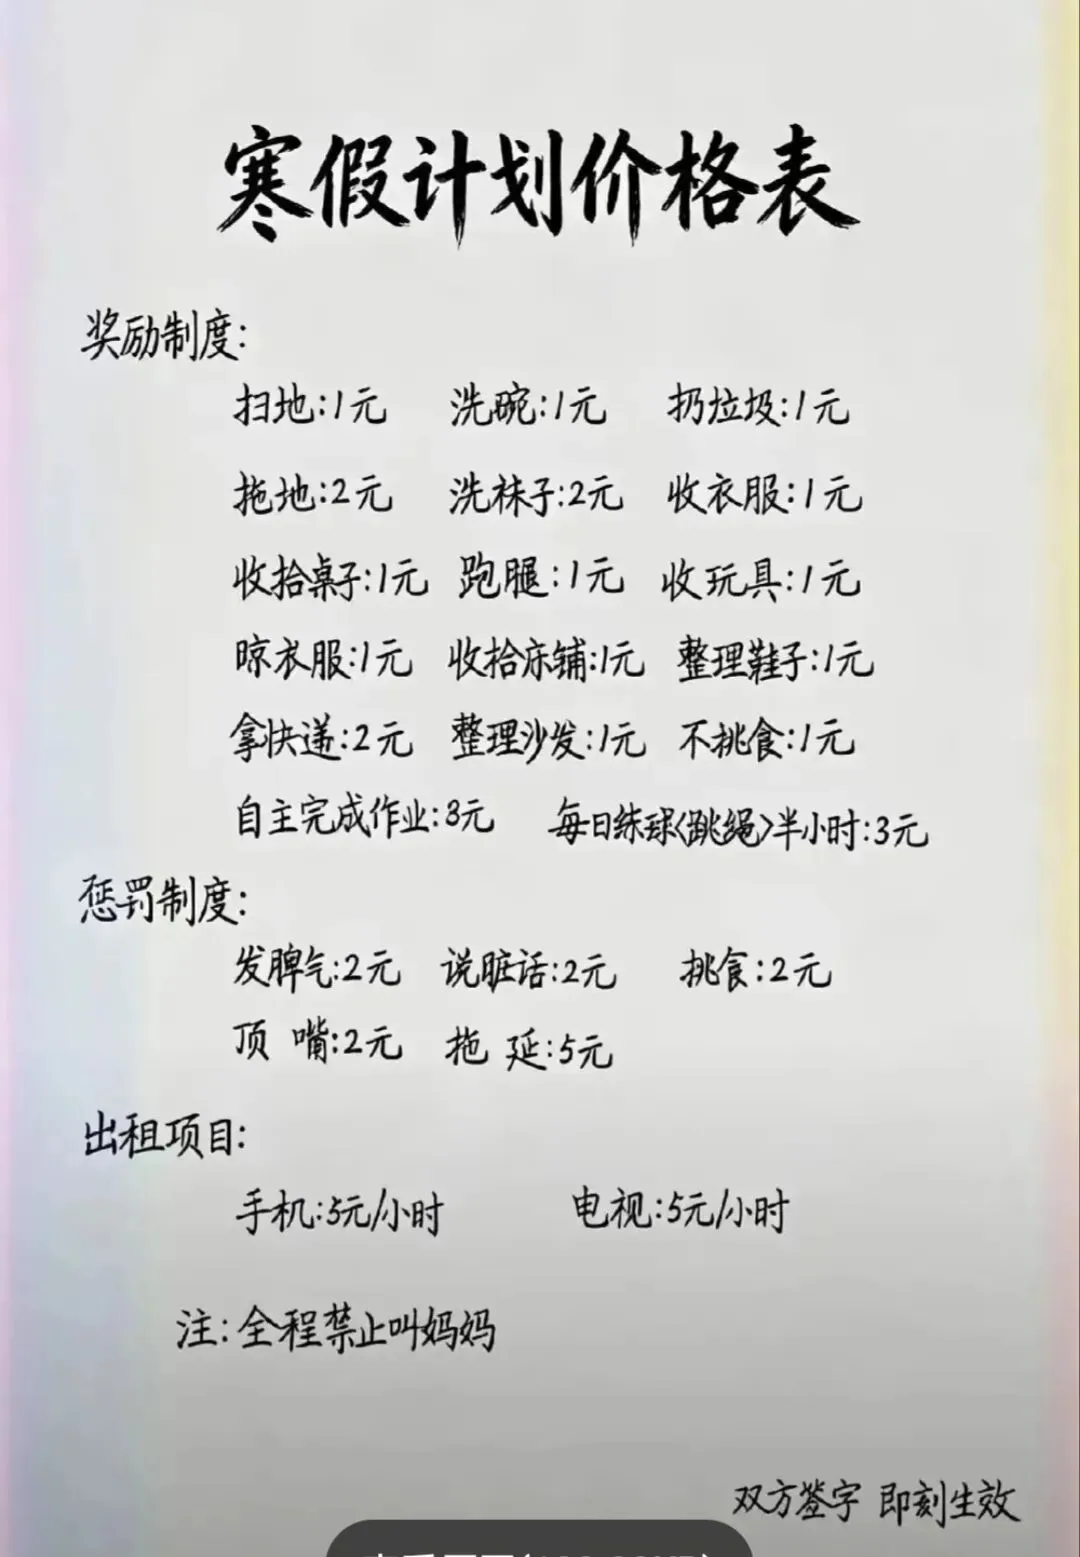 寒假计划价格表
奖励制度:
扫地:1元 洗碗:1元 扔垃圾:1元
拖地:2元 洗袜子:2元 收衣服:1元
收拾桌子:1元 跑腿:1元 收玩具:1元
晾衣服:1元 收拾床铺:1元 整理鞋子:1元
拿快递:2元 整理沙发:1元 不挑食:1元
自主完成作业:3元 每日练球<跳绳>半小时:3元
惩罚制度:
发脾气:2元 说脏话:2元 挑食:2元
顶 嘴:2元 拖 延:5元
出租项目:
手机:5元/小时 电视:5元/小时
注:全程禁止叫妈妈
双方签字 即刻生效